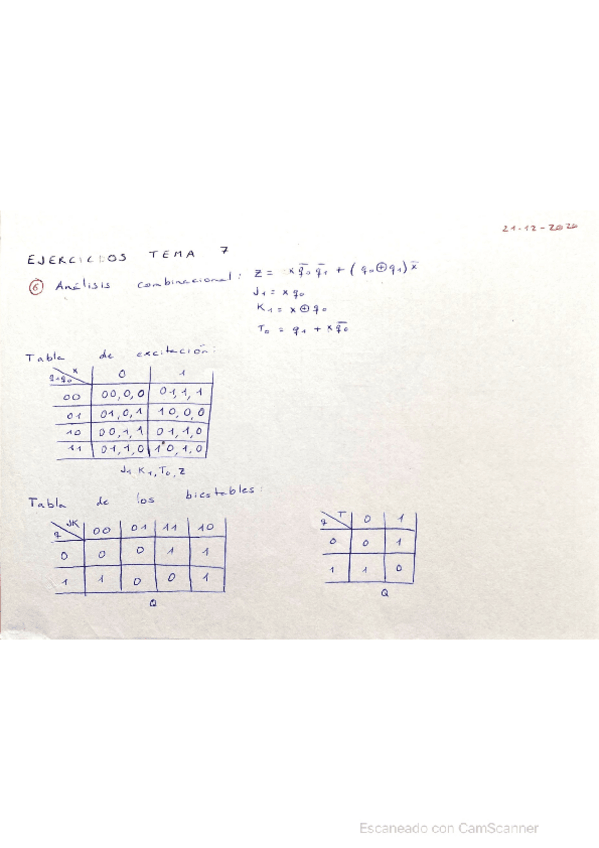 21-12-2020
EJERCICIOS TEMA 7
⑥ Análisis combinacional: Z = x q̅₀ q̅₁ + (q₀⊕q₁) x̅
J₁ = x q₀
K₁ = x ⊕ q₀
T₀ = q₁ + x q̅₀
Tabla de excitación:
q₁q₀ x 0 1
00 00,0,0 01,1,1
01 01,0,1 10,0,0
10 00,1,1 01,1,0
11 01,1,0 10,1,0
J₁ K₁, T₀, Z
Tabla de los biestables:
q JK 00 01 11 10
0 0 0 1 1
1 1 0 0 1
Q
q T 0 1
0 0 1
1 1 0
Q
Escaneado con CamScanner